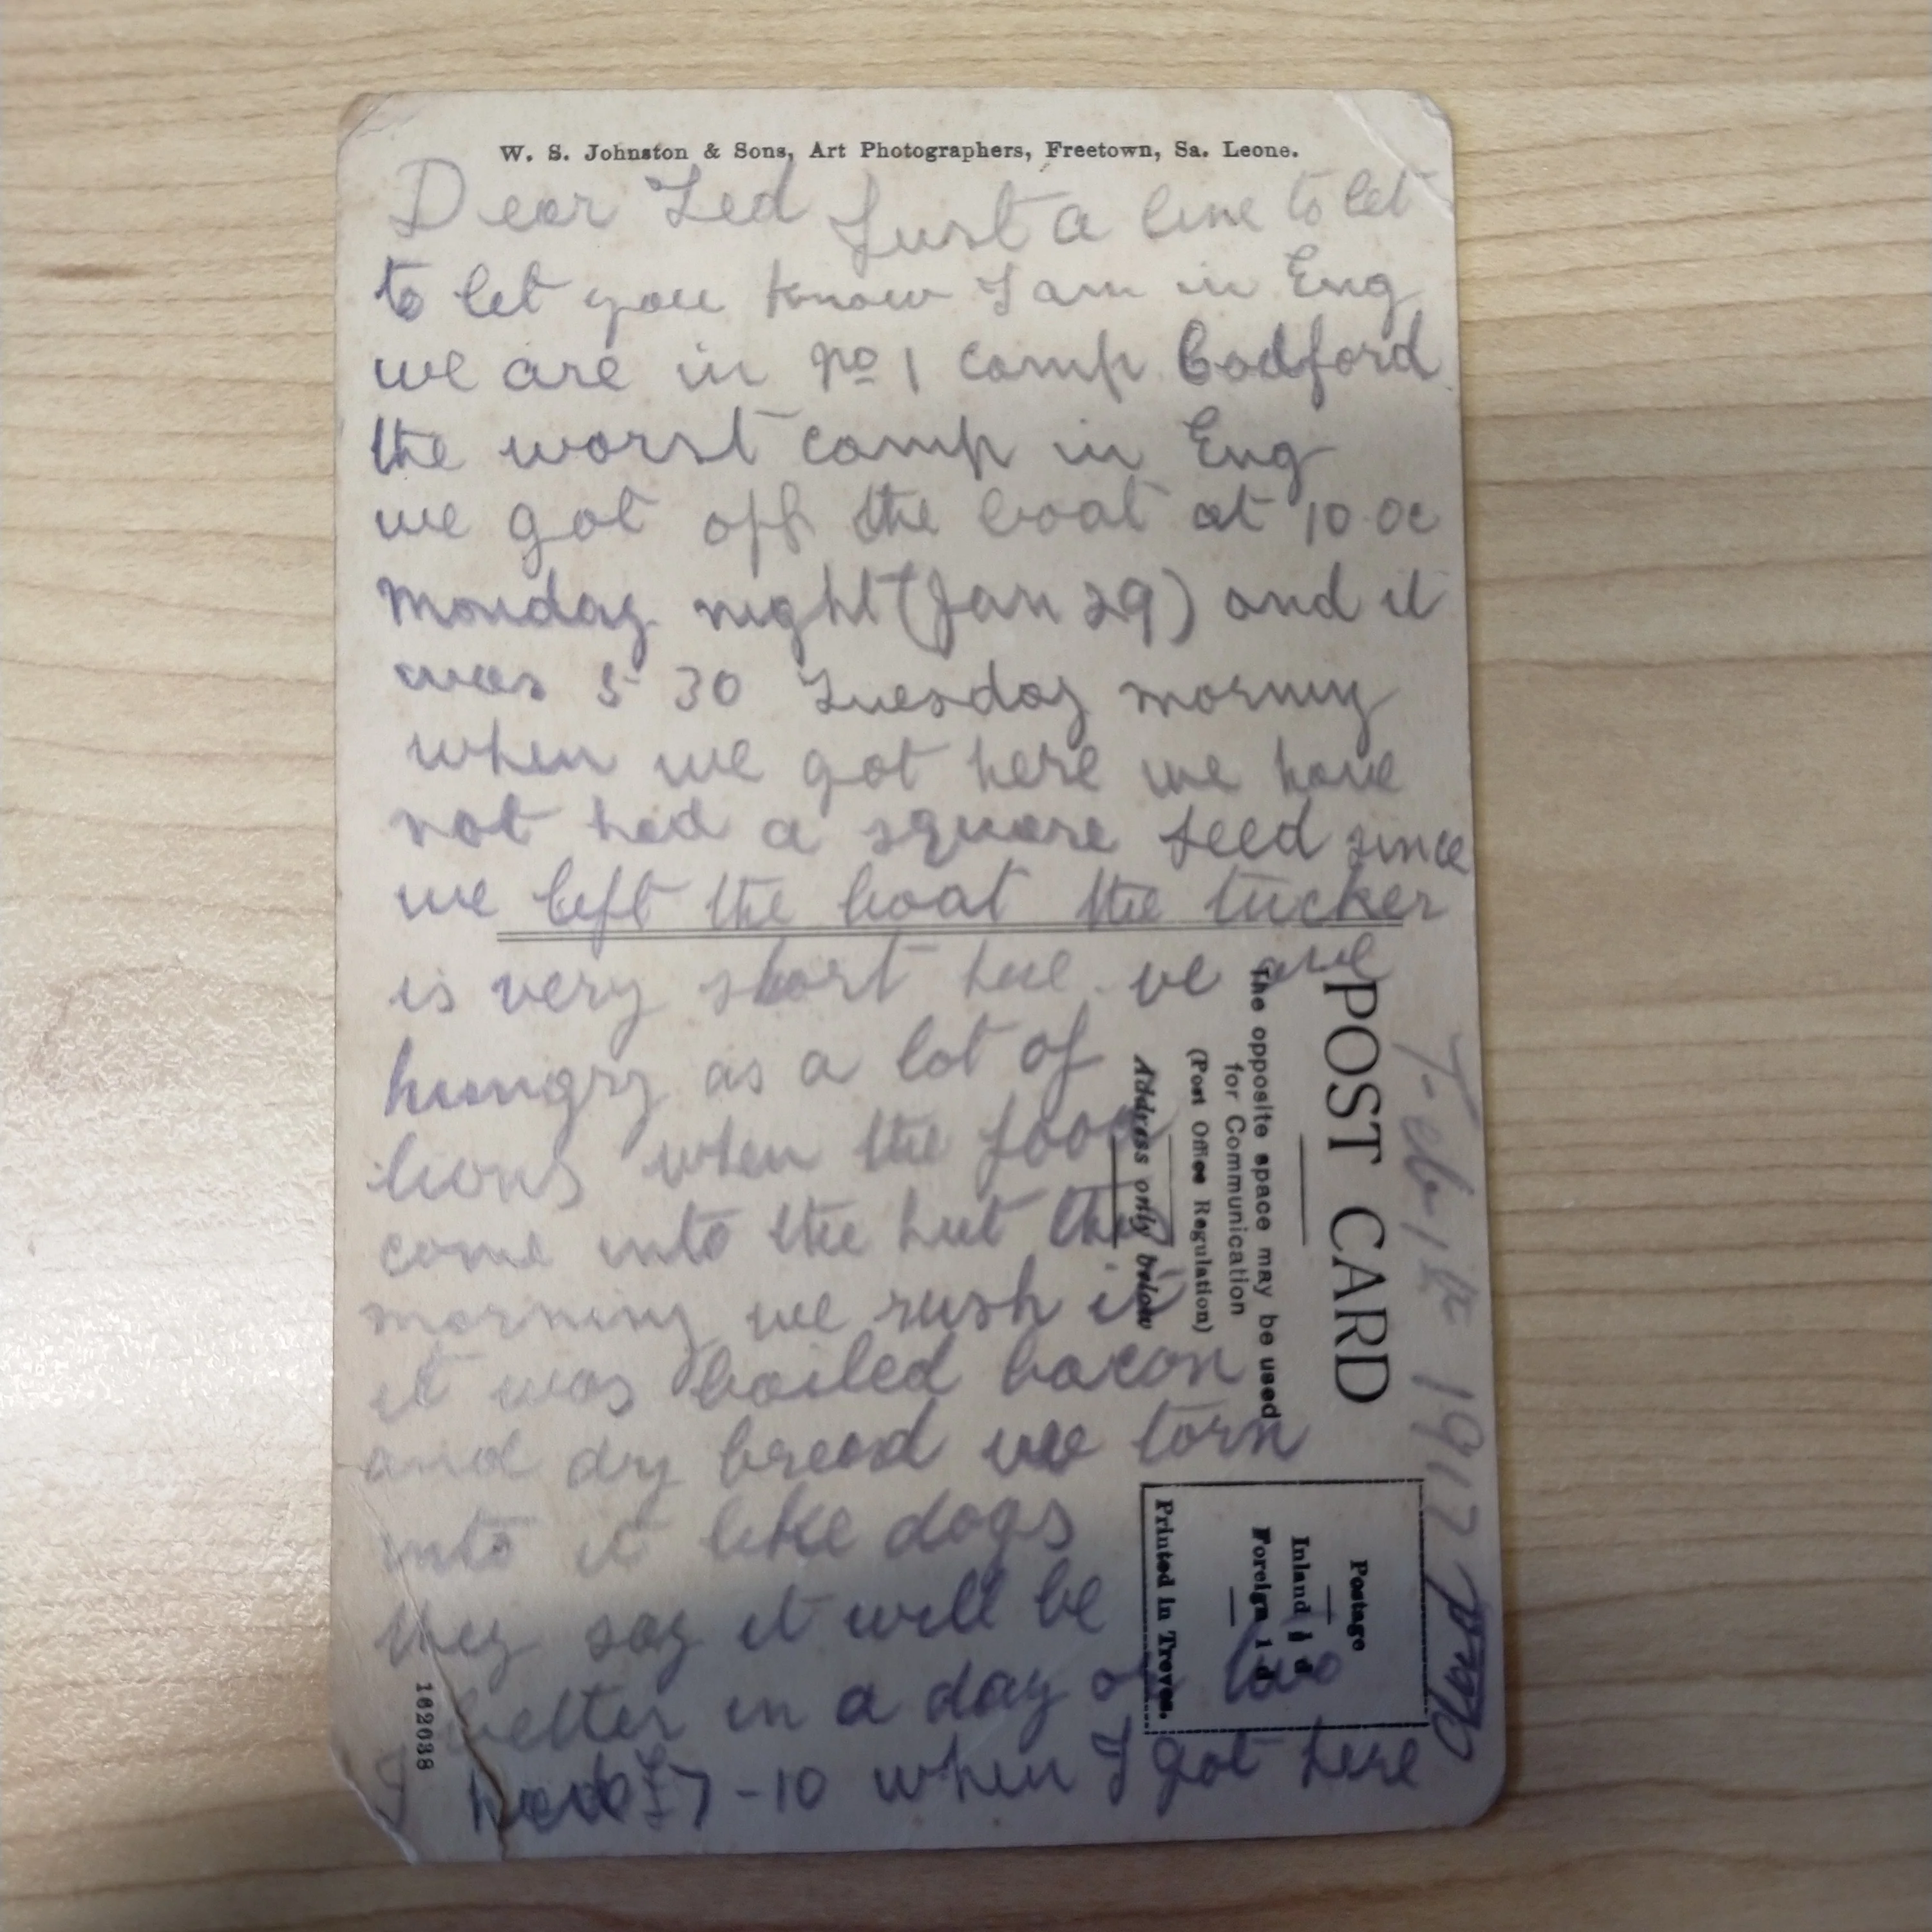 W. S. Johnston & Sons, Art Photographers, Freetown, Sa. Leone.
Dear Ted Just a line to let
to let you know I am in Eng
we are in No 1 camp Codford
the worst camp in Eng
we got off the boat at 10 oc
monday night (Jan 29) and it
was 5 30 Tuesday morning
when we got here we have
not had a square feed since
we left the boat the tucker
is very short here. we are
hungry as a lot of
lions when the food
come into the hut this
morning we rush it
it was boiled bacon
and dry bread we torn
into it like dogs
they say it will be
better in a day or two
I had £7-10 when I got here
Feb 1st 1917
POST CARD
The opposite space may be used
for Communication
(Post Office Regulation)
Address only below
Postage
Inland ½ d
Foreign 1 d
Printed in Treves.
162038